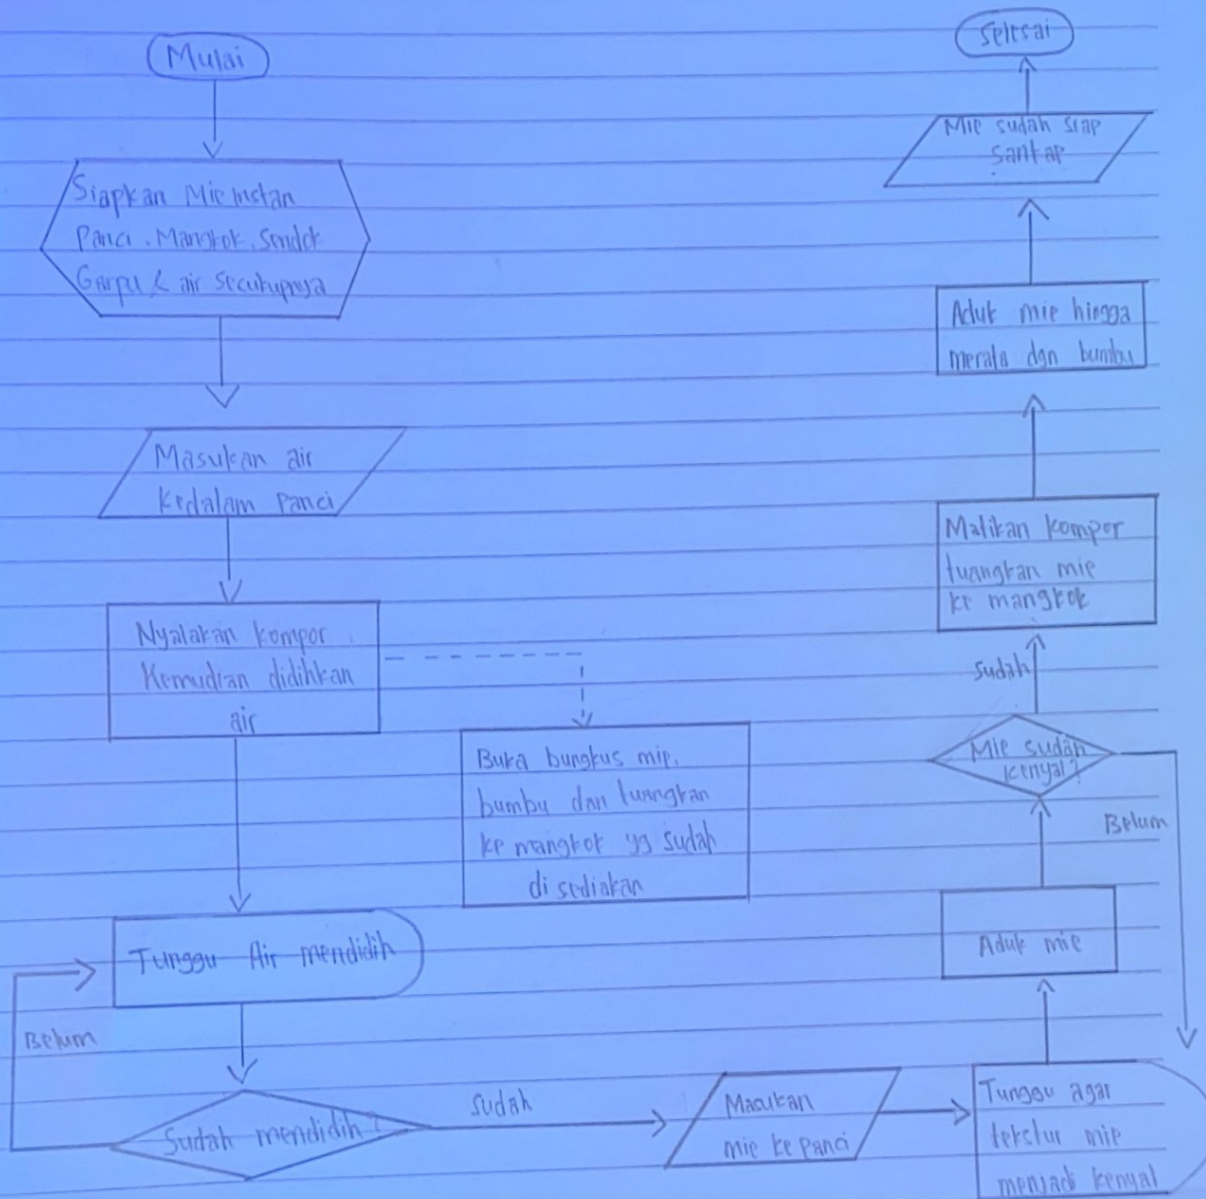 Mulai
Siapkan Mie Instan
Panci, Mangkok, Sendok
Garpu & air secukupnya
Masukan air
Kedalam Panci
Nyalakan kompor
Kemudian didihkan
air
Buka bungkus mie,
bumbu dan tuangkan
ke mangkok yg sudah
di sediakan
Tunggu Air mendidih
Belum
Sudah mendidih?
Sudah
Masukan
mie ke panci
Tunggu agar
tekstur mie
menjadi kenyal
Aduk mie
Mie sudah
kenyal?
Belum
Sudah
Matikan kompor
tuangkan mie
ke mangkok
Aduk mie hingga
merata dgn bumbu
Mie sudah siap
santap
Selesai